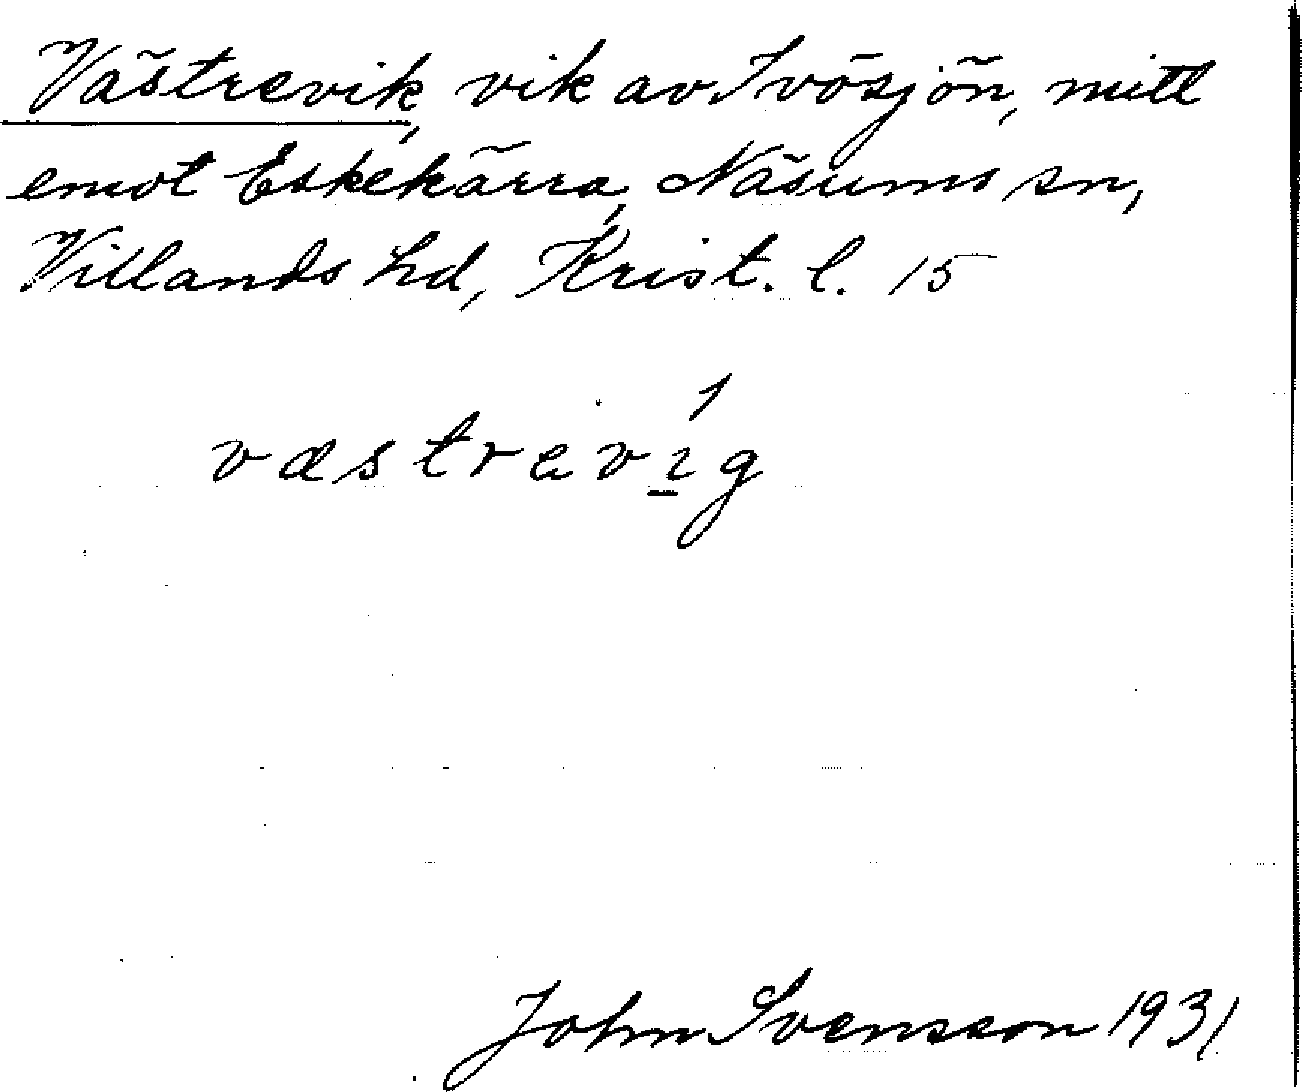 Västrevik, vik av Ivösjön, mitt
emot Eskekärra, Näsums sn,
Villands hd, Krist. l. 15
væstravı̱́g
John Svensson 1931